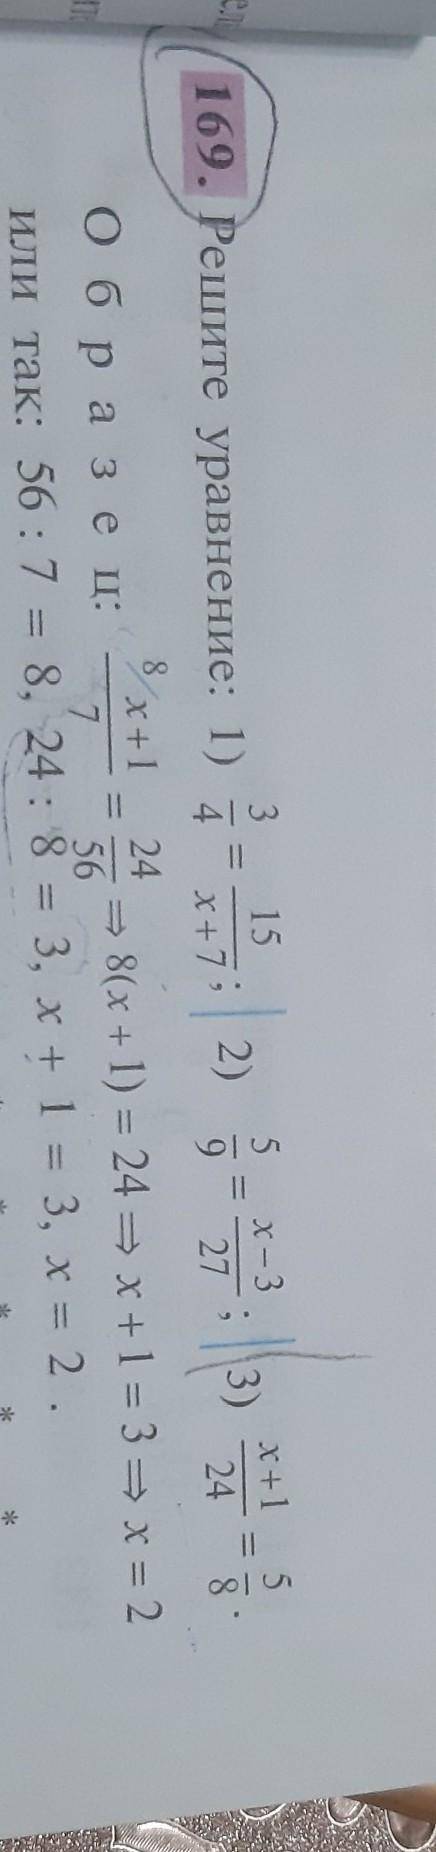 169. Решите уравнение: 1) 3/4 = 15/(x+7); 2) 5/9 = (x−3)/27; 3) (x+1)/24 = 5/8.
Образец: 8/ (x+1)/7 = 24/56 ⇒ 8(x + 1) = 24 ⇒ x + 1 = 3 ⇒ x = 2
или так: 56 : 7 = 8, 24 : 8 = 3, x + 1 = 3, x = 2 .
* * * *